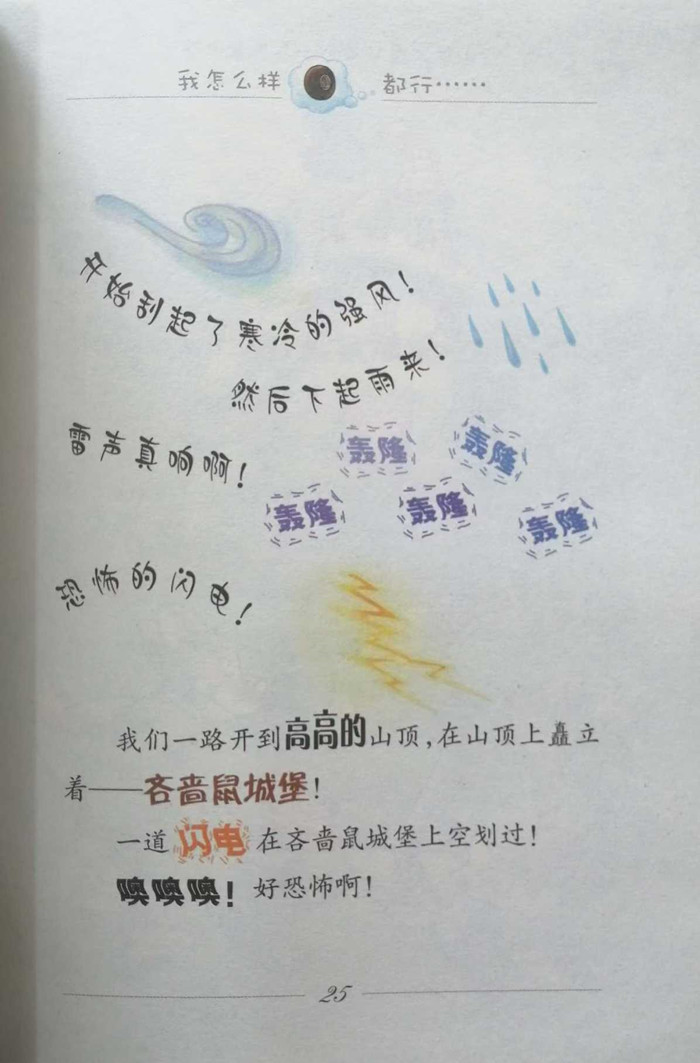 我怎么样 都行……
开始刮起了寒冷的强风！
然后下起雨来！
雷声真响啊！
轰隆 轰隆
轰隆 轰隆 轰隆
恐怖的闪电！
我们一路开到高高的山顶，在山顶上矗立
着——吝啬鼠城堡！
一道闪电在吝啬鼠城堡上空划过！
噢噢噢！好恐怖啊！
25